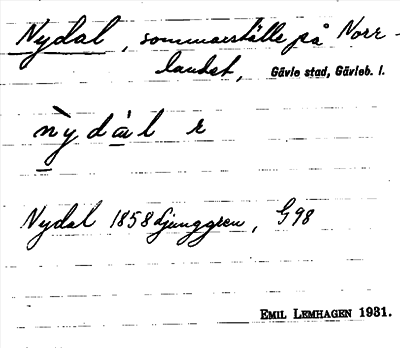 Nydal, sommarställe på Norr-
landet, Gävle stad, Gävleb. l.
nỳdàl r
Nydal 1858 Ljunggren, G 98
EMIL LEMHAGEN 1931.